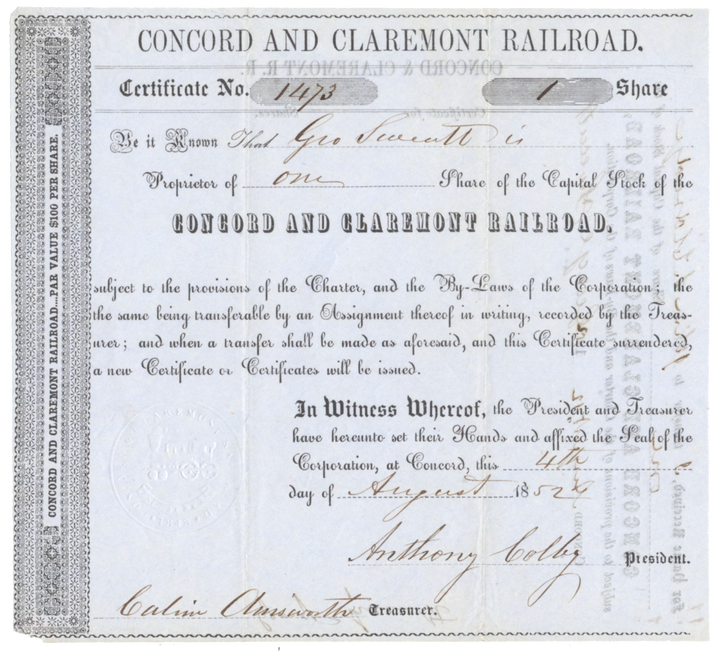 CONCORD AND CLAREMONT RAILROAD.
CONCORD & CLAREMONT R. R.
Certificate No. 1473 1 Share
Be it Known That Geo Sweatt is
Proprietor of one Share of the Capital Stock of the
CONCORD AND CLAREMONT RAILROAD,
subject to the provisions of the Charter, and the By-Laws of the Corporation; the
the same being transferable by an Assignment thereof in writing, recorded by the Treas-
urer; and when a transfer shall be made as aforesaid, and this Certificate surrendered,
a new Certificate or Certificates will be issued.
In Witness Whereof, the President and Treasurer
have hereunto set their Hands and affixed the Seal of the
Corporation, at Concord, this 4th
day of August 1852
Anthony Colby President.
Ainsworth Treasurer.
CONCORD AND CLAREMONT RAILROAD....PAR VALUE $100 PER SHARE.
CONCORD AND CLAREMONT RAILROAD,